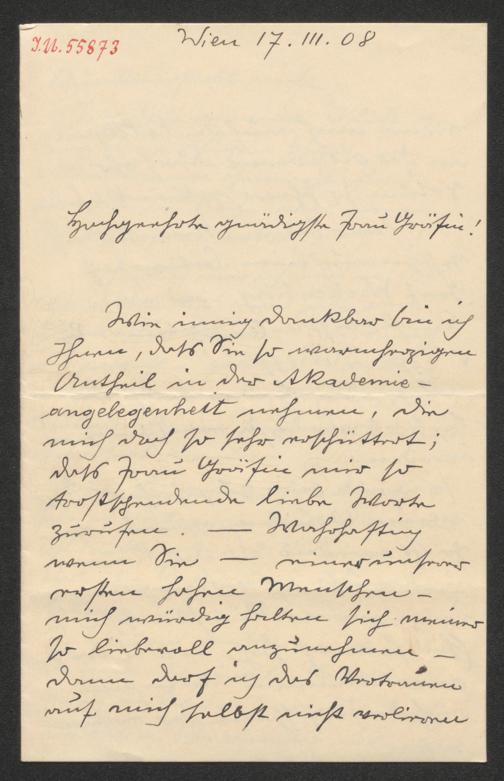 I.N. 55873
Wien 17. III. 08
Hochgeehrte gnädigste Frau Gräfin!
Wie innig dankbar bin ich
Ihnen, daß Sie so warmherzigen
Antheil in der Akademie-
angelegenheit nehmen, die
mich doch so sehr erschüttert;
daß Frau Gräfin mir so
trostspendende liebe Worte
zurufen. — Wahrhaftig
wenn Sie — einer unserer
ersten hohen Menschen —
mich würdig halten sich meiner
so liebevoll anzunehmen —
dann darf ich das Vertrauen
auf mich selbst nicht verlieren